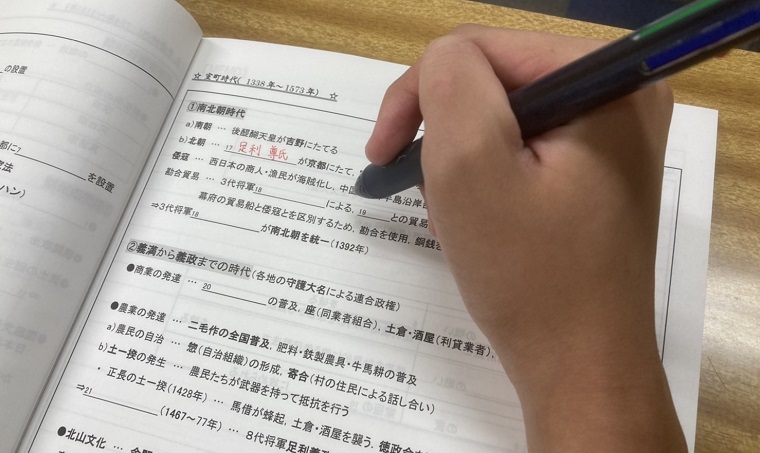 の設置
都に1 を設置
法
ハン)
☆ 室町時代( 1338年～1573年) ☆
①南北朝時代
a)南朝 … 後醍醐天皇が吉野にたてる
b)北朝 … 17 足利 尊氏 が京都にたて,
倭寇 … 西日本の商人・漁民が海賊化し, 中国 半島沿岸
勘合貿易 … 3代将軍18 による, 19 との貿易
幕府の貿易船と倭寇とを区別するため, 勘合を使用, 銅銭
⇒3代将軍18 が南北朝を統一(1392年)
②義満から義政までの時代(各地の守護大名による連合政権)
●商業の発達 … 20 の普及, 座(同業者組合), 土倉・酒屋(利貸業者),
●農業の発達 … 二毛作の全国普及, 肥料・鉄製農具・牛馬耕の普及
a)農民の自治 … 惣(自治組織)の形成, 寄合(村の住民による話し合い)
b)土一揆の発生 … 農民たちが武器を持って抵抗を行う
・ 正長の土一揆(1428年) … 馬借が蜂起, 土倉・酒屋を襲う, 徳政令
⇒21 (1467～77年) … 8代将軍足利義
●北山文化 …